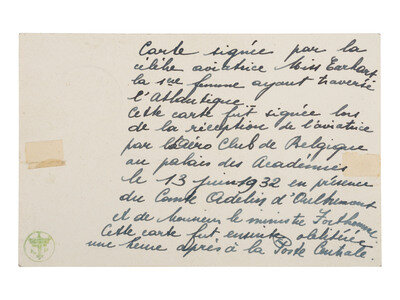 Carte signée par la
célèbre aviatrice Miss Earhart
la 1ere femme ayant traversé
l'Atlantique.
Cette carte fut signée lors
de la réception de l'aviatrice
par l'Aero Club de Belgique
au palais des Academies
le 13 juin 1932 en présence
du Comte Adelin d'Oultremont
et de Monsieur le ministre Forthomme.
Cette carte fut ensuite oblitérée
une heure après à la Poste Centrale.